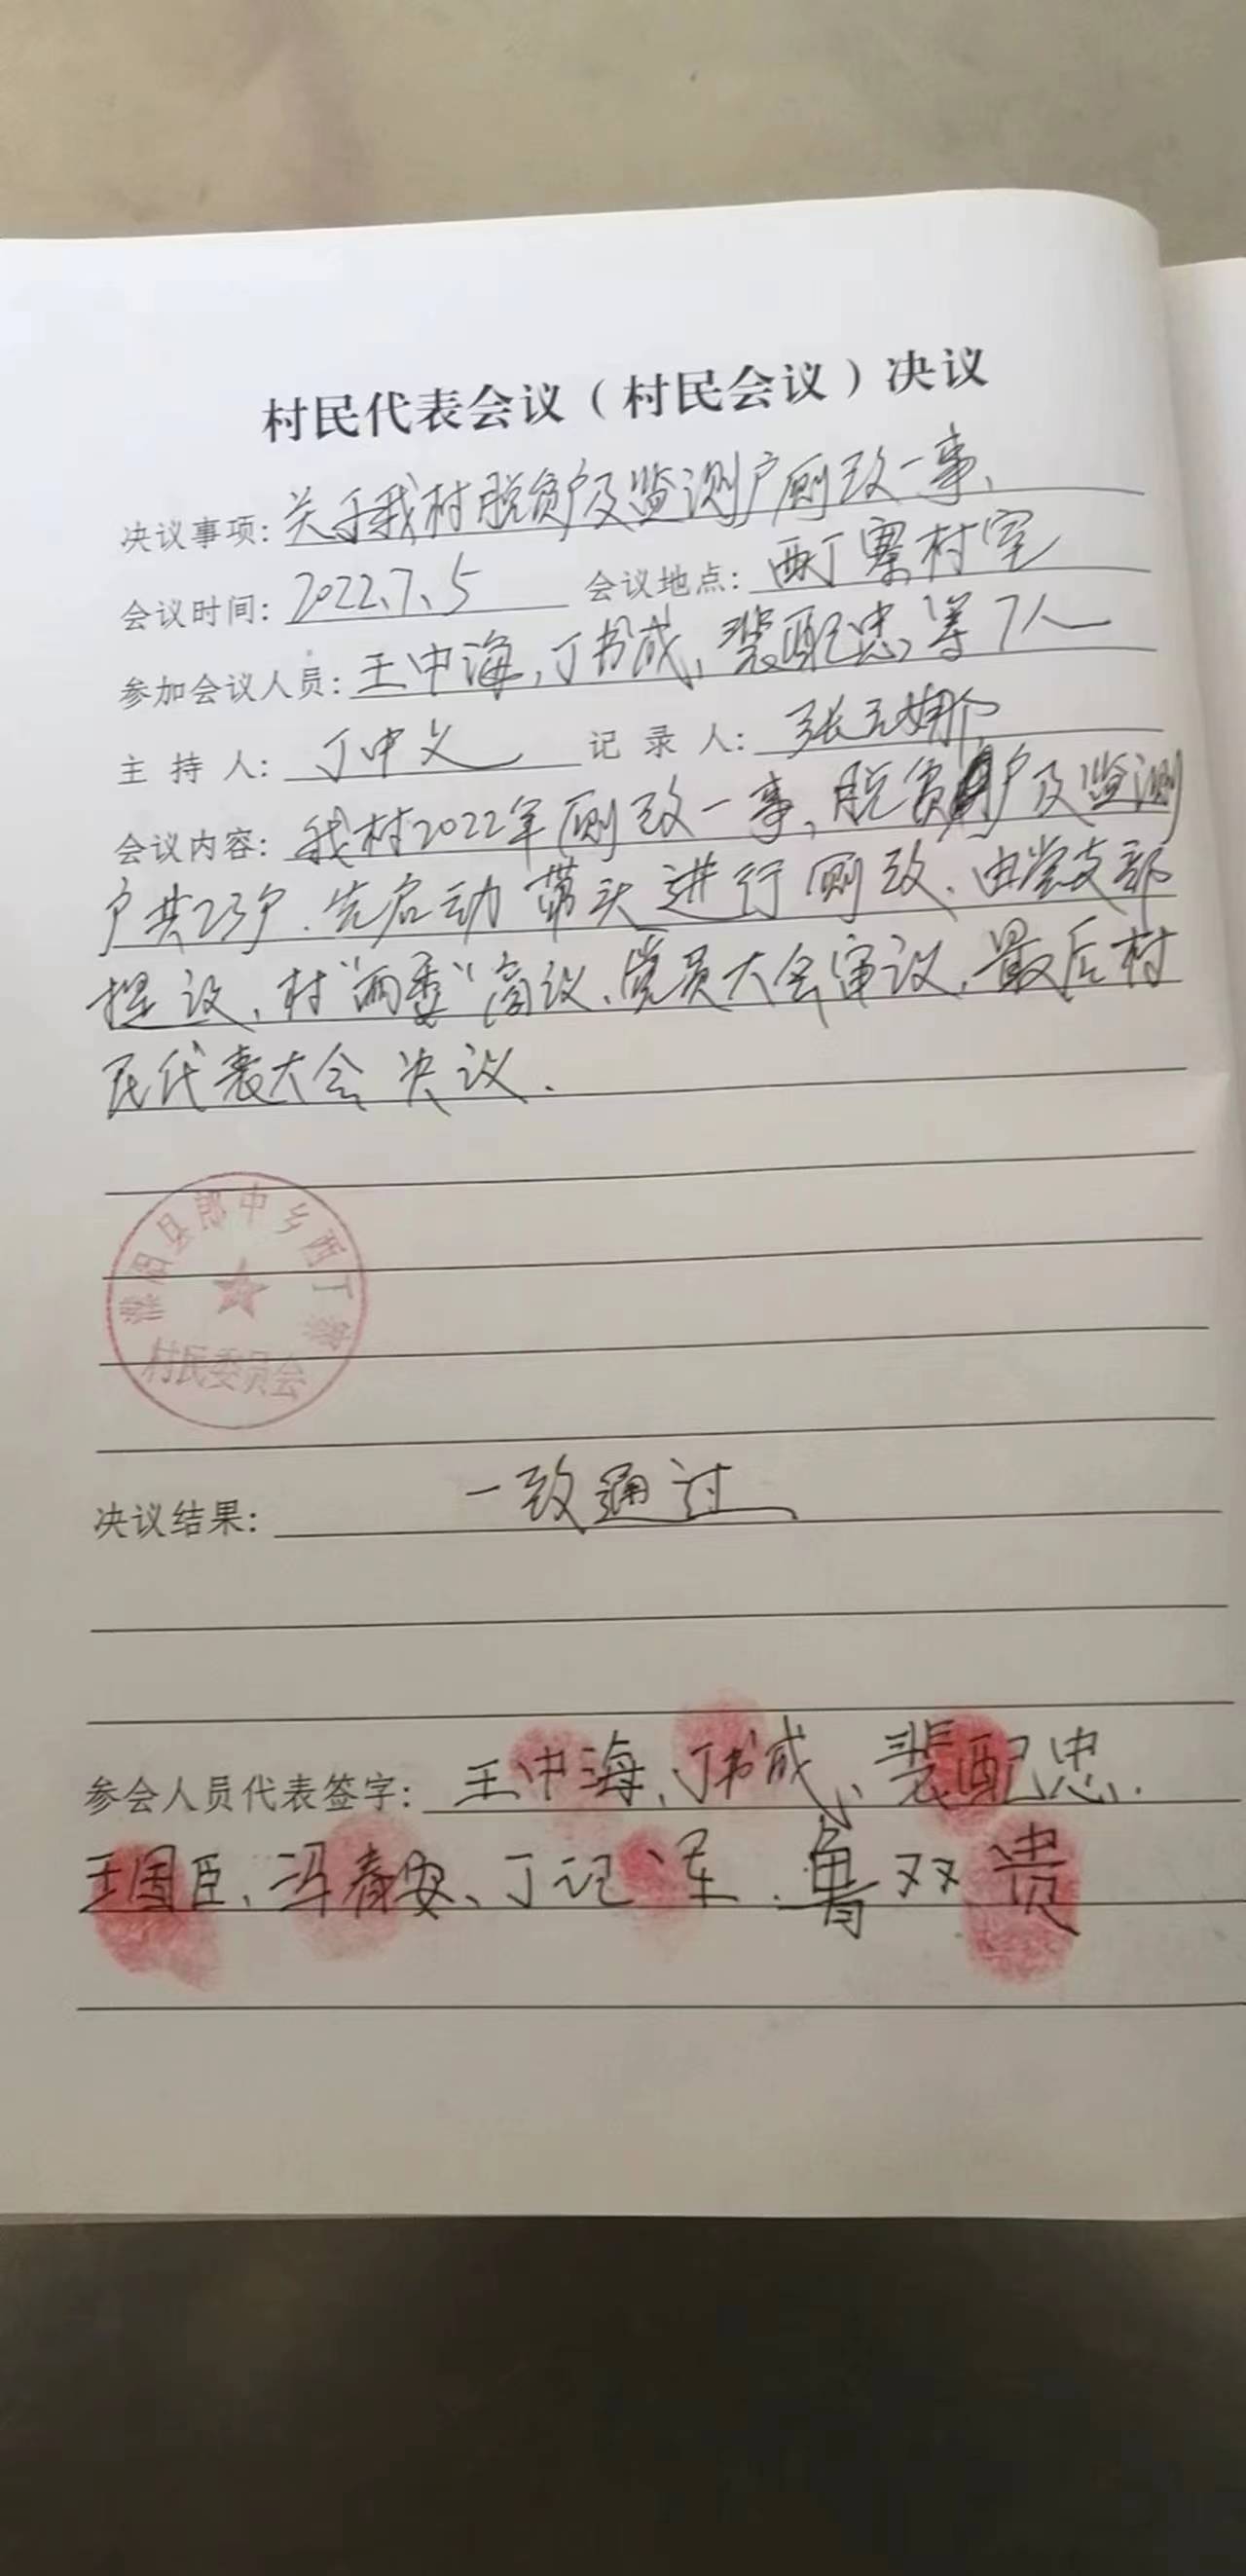 村民代表会议（村民会议）决议
决议事项：关于我村脱贫户及监测户厕改一事、
会议时间：2022、7、5 会议地点：西丁寨村室
参加会议人员：王中海、丁书成、裴配忠等7人
主持人：丁中义 记录人：张元娜
会议内容：我村2022年厕改一事，脱贫户及监测
户共23户．先启动带头进行厕改、由党支部
提议、村“两委”商议、党员大会审议、最后村
民代表大会决议．
县郎中乡西丁寨
村民委员会
决议结果：一致通过、
参会人员代表签字：王中海、丁书成、裴配忠．
王国臣、冯春安、丁记军．鲁双贵